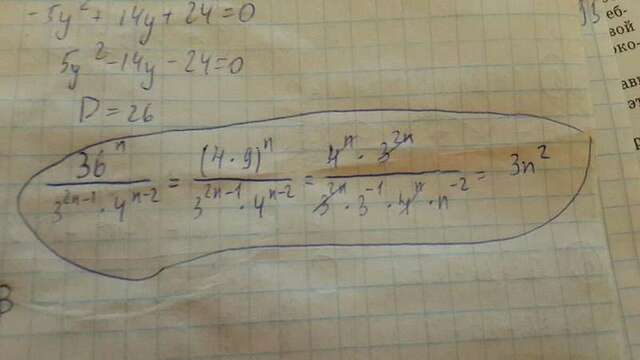 -5y² + 14y + 24 = 0
5y² - 14y - 24 = 0
D = 26
36ⁿ / (3²ⁿ⁻¹ · 4ⁿ⁻²) = (4 · 9)ⁿ / (3²ⁿ⁻¹ · 4ⁿ⁻²) = 4ⁿ · 3²ⁿ / (3²ⁿ · 3⁻¹ · 4ⁿ · n⁻²) = 3n²
В
еб-
вой
око-
ав
эт
р